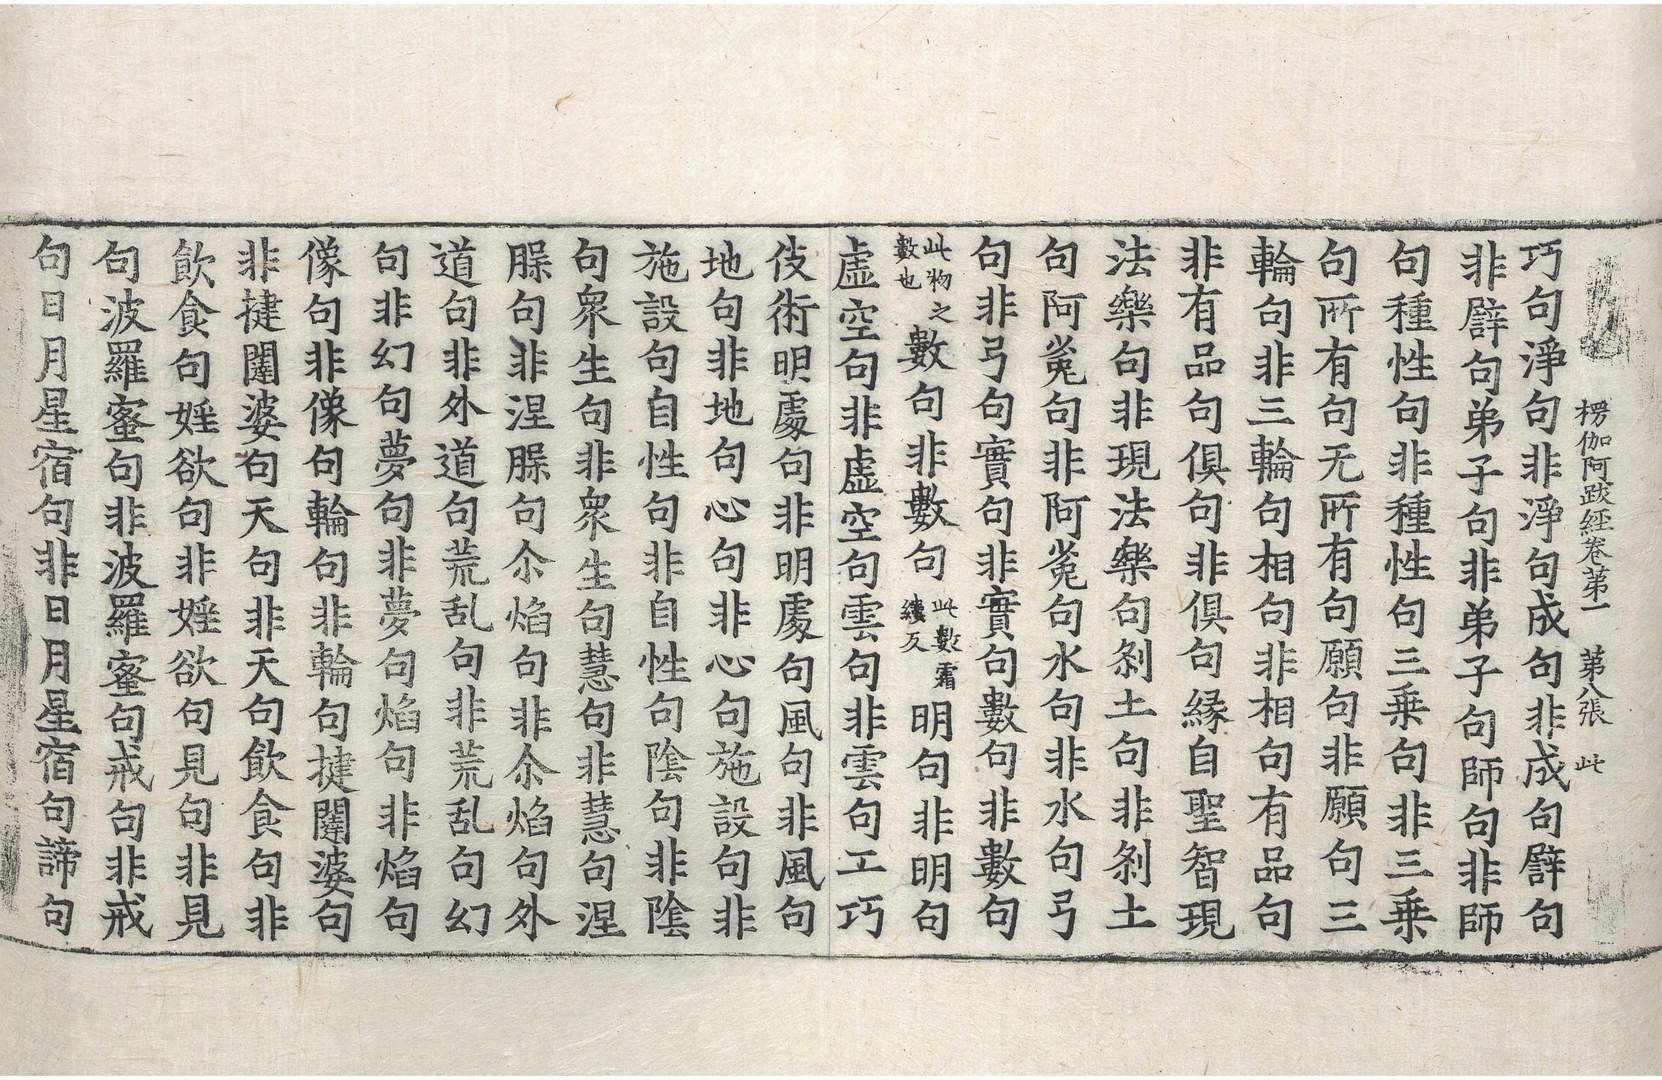 楞伽阿跋經卷第一　第八張　此
巧句淨句非淨句成句非成句譬句
非譬句弟子句非弟子句師句非師
句種性句非種性句三乗句非三乗
句所有句无所有句願句非願句三
輪句非三輪句相句非相句有品句
非有品句俱句非俱句縁自聖智現
法樂句非現法樂句刹土句非刹土
句阿㝹句非阿㝹句水句非水句弓
句非弓句實句非實句數句非數句
此物之數也數句非數句此數霜縷反明句非明句
虛空句非虛空句雲句非雲句工巧
伎術明處句非明處句風句非風句
地句非地句心句非心句施設句非
施設句自性句非自性句陰句非陰
句衆生句非衆生句慧句非慧句涅
槃句非涅槃句尒焰句非尒焰句外
道句非外道句荒乱句非荒乱句幻
句非幻句夢句非夢句焰句非焰句
像句非像句輪句非輪句揵闥婆句
非揵闥婆句天句非天句飲食句非
飲食句婬欲句非婬欲句見句非見
句波羅蜜句非波羅蜜句戒句非戒
句日月星宿句非日月星宿句諦句